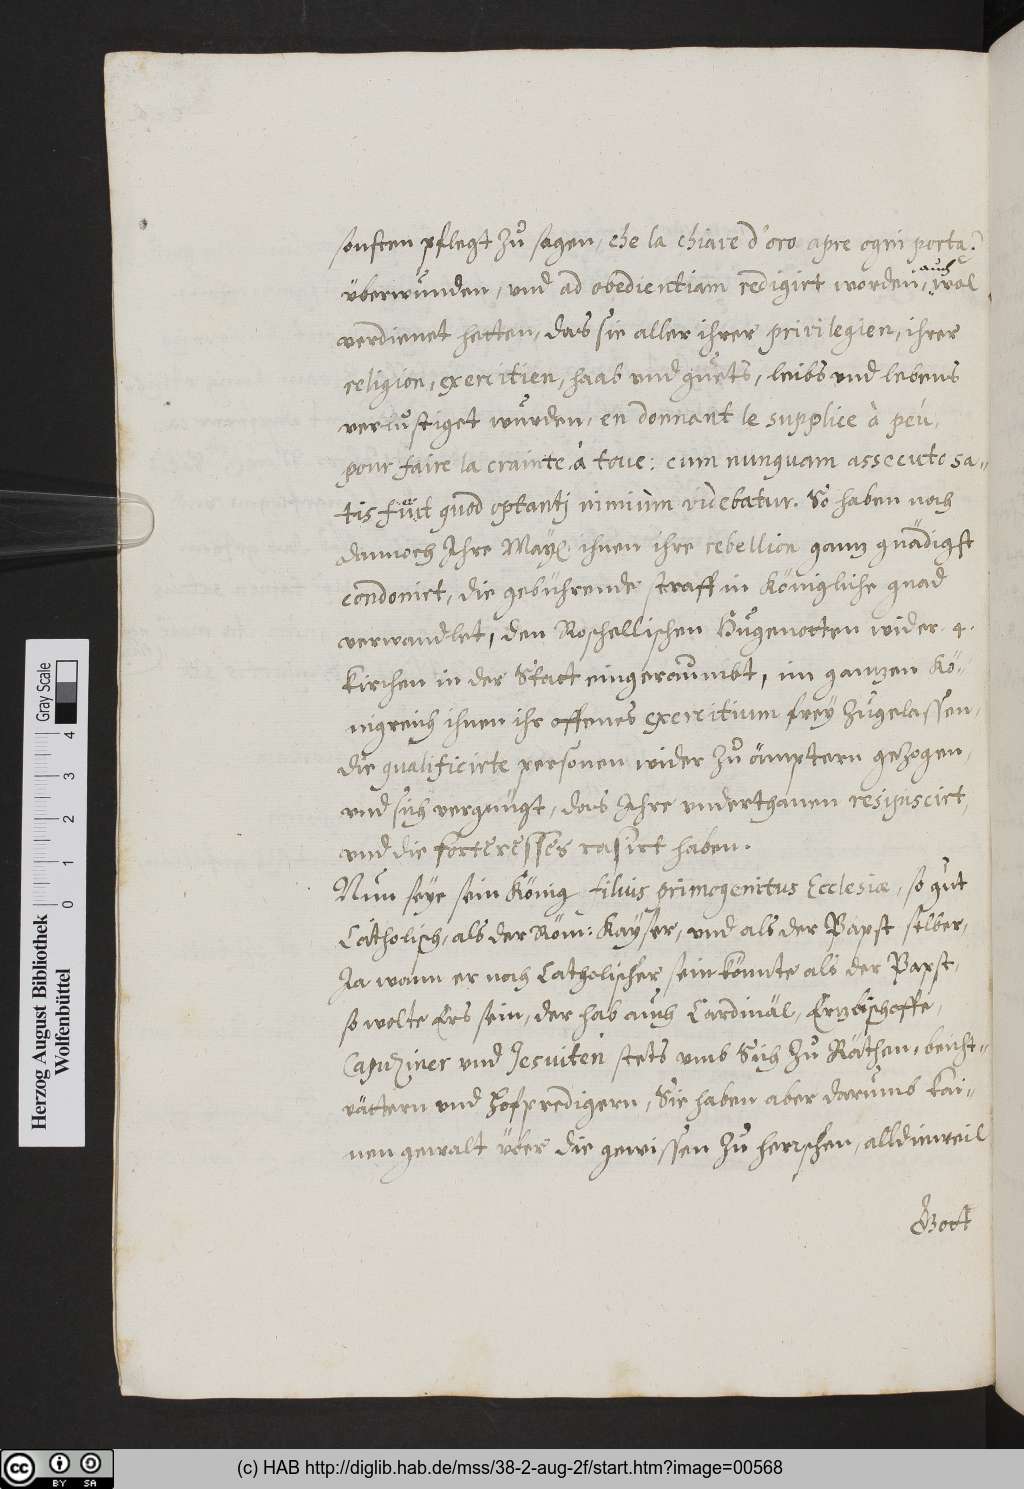 sonsten pflegt zu sagen, che la chiave d'oro apre ogni porta.)
überwunden, vnd ad obedientiam redigirt worden, auch wol
verdienet hetten, das sie aller ihrer privilegien, ihrer
religion, exercitien, haab vnd guets, leibs vnd lebens
verlustiget wurden, en donnant le supplice à peu,
pour faire la crainte à tous: cum nunquam assecuto sa-
tis fuerit quod optanti nimium videbatur. So haben noch
dannoch Ihre May: ihnen ihre rebellion gantz gnädigst
condonirt, die gebührende straff in Königliche gnad
verwandlet, den Roschellischen Hugenotten wider 4.
kirchen in der Statt eingeraumbt, im gantzen Kö-
nigreich ihnen ihr offenes exercitium frey zugelassen,
die qualificirte personen wider zu ämptern gezogen,
vnd sich vergnügt, das Ihre vnderthanen resipiscirt,
vnd die forteresses rasirt haben.
Nun seye sein König filius primogenitus Ecclesiæ, so gut
Catholisch, als der Röm: Kayser, vnd als der Papst selber,
Ja wann er noch Catholischer sein könnte als der Papst,
so wolte Ers sein, der hab auch Cardinäl, Ertzbischoffe,
Capuziner vnd Jesuiten stets vmb Sich zu Räthen, beicht-
vättern vnd hofpredigern, Sie haben aber darumb kai-
nen gewalt über die gewissen zu herrschen, alldieweil
Gott
Herzog August Bibliothek
Wolfenbüttel
0 1 2 3 4
Gray Scale
cc BY SA
(c) HAB http://diglib.hab.de/mss/38-2-aug-2f/start.htm?image=00568